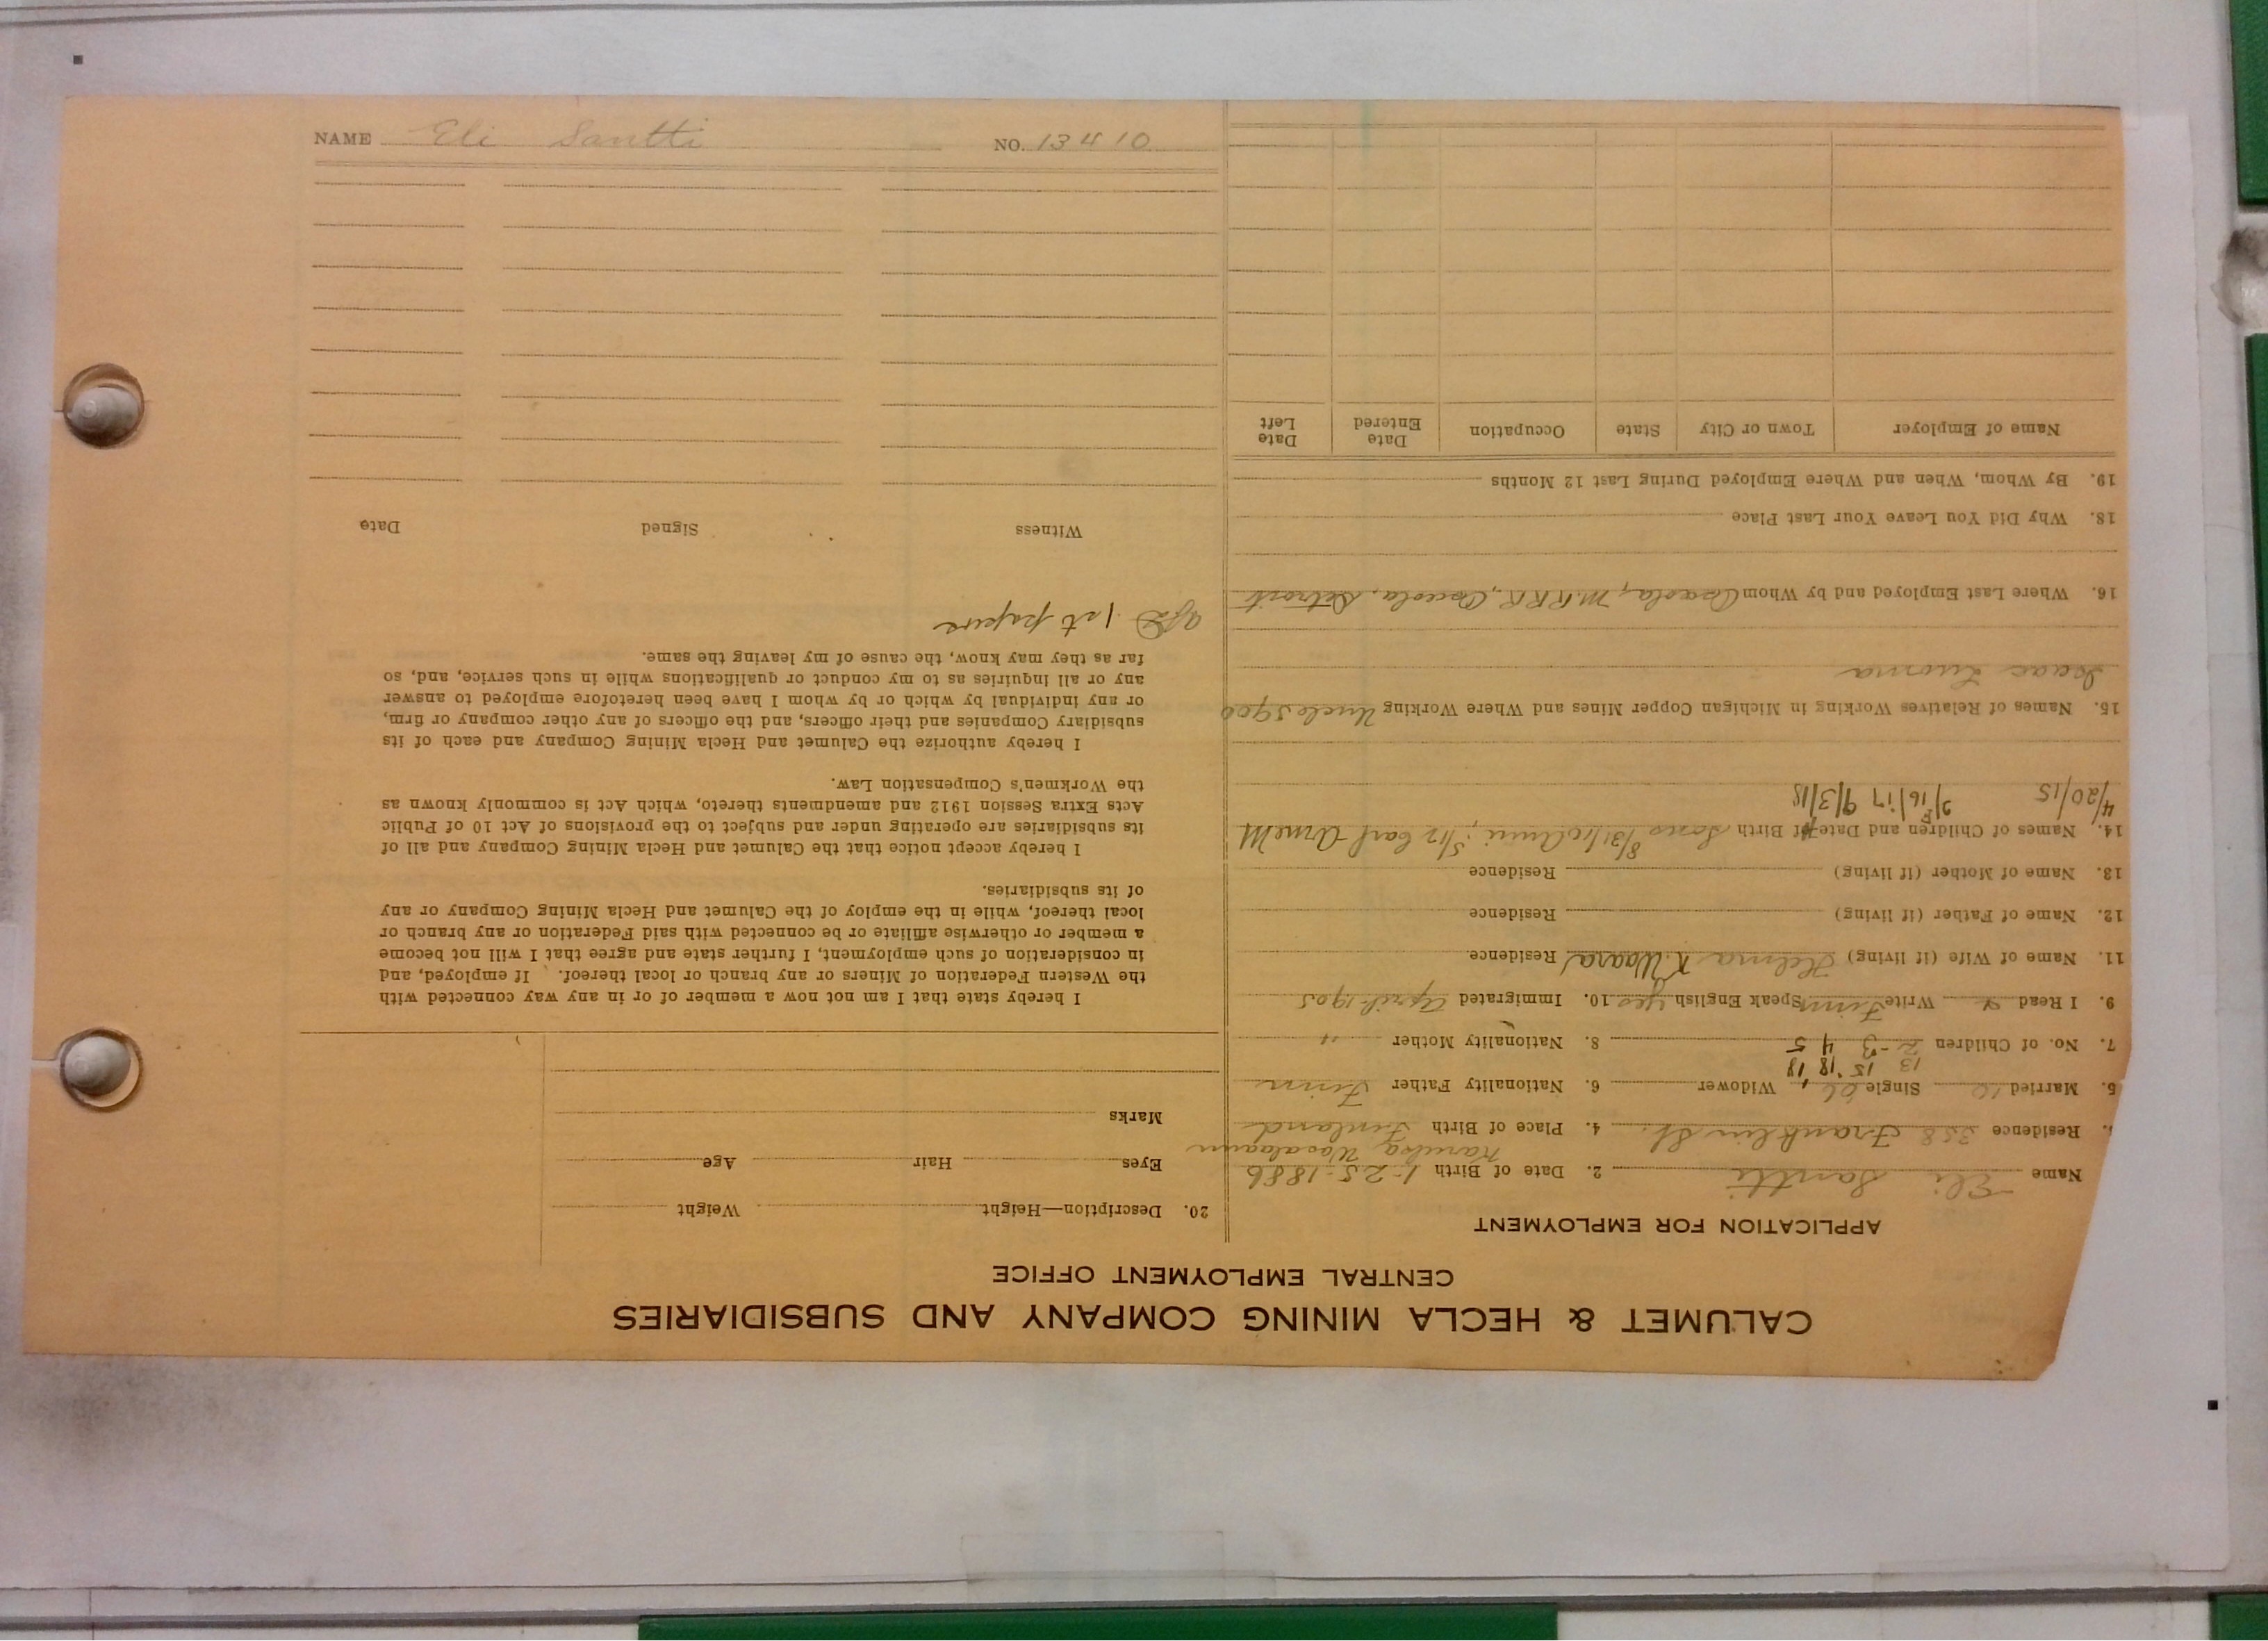 NAME Eli Santti NO. 13410
CALUMET & HECLA MINING COMPANY AND SUBSIDIARIES
CENTRAL EMPLOYMENT OFFICE
APPLICATION FOR EMPLOYMENT
Name Eli Santti 2. Date of Birth 1-25-1886
Residence 358 Franklin St. 4. Place of Birth Finland
5. Married 10 Single Widower 6. Nationality Father Finn
13 15 18 18
7. No. of Children 2 - 3 4 5 8. Nationality Mother "
9. I Read Write Finn Speak English yes 10. Immigrated April-1905
11. Name of Wife (if living) Helma K. Waara Residence
12. Name of Father (if living) Residence
13. Name of Mother (if living) Residence
14. Names of Children and Date of Birth Sons 8/31/10 5/12 Carl
4/20/15 2/16/17 9/3/18
15. Names of Relatives Working in Michigan Copper Mines and Where Working Uncle 5900
Isaac Luoma
16. Where Last Employed and by Whom Osceola, M.R.R.R., Osceola, Detroit
18. Why Did You Leave Your Last Place
19. By Whom, When and Where Employed During Last 12 Months
Name of Employer Town or City State Occupation Date Entered Date Left
20. Description—Height Weight
Eyes Hair Age
Marks
I hereby state that I am not now a member of or in any way connected with
the Western Federation of Miners or any branch or local thereof. If employed, and
in consideration of such employment, I further state and agree that I will not become
a member or otherwise affiliate or be connected with said Federation or any branch or
local thereof, while in the employ of the Calumet and Hecla Mining Company or any
of its subsidiaries.
I hereby accept notice that the Calumet and Hecla Mining Company and all of
its subsidiaries are operating under and subject to the provisions of Act 10 of Public
Acts Extra Session 1912 and amendments thereto, which Act is commonly known as
the Workmen's Compensation Law.
I hereby authorize the Calumet and Hecla Mining Company and each of its
subsidiary Companies and their officers, and the officers of any other company or firm,
or any individual by which or by whom I have been heretofore employed to answer
any or all inquiries as to my conduct or qualifications while in such service, and, so
far as they may know, the cause of my leaving the same.
1st papers
Witness Signed Date